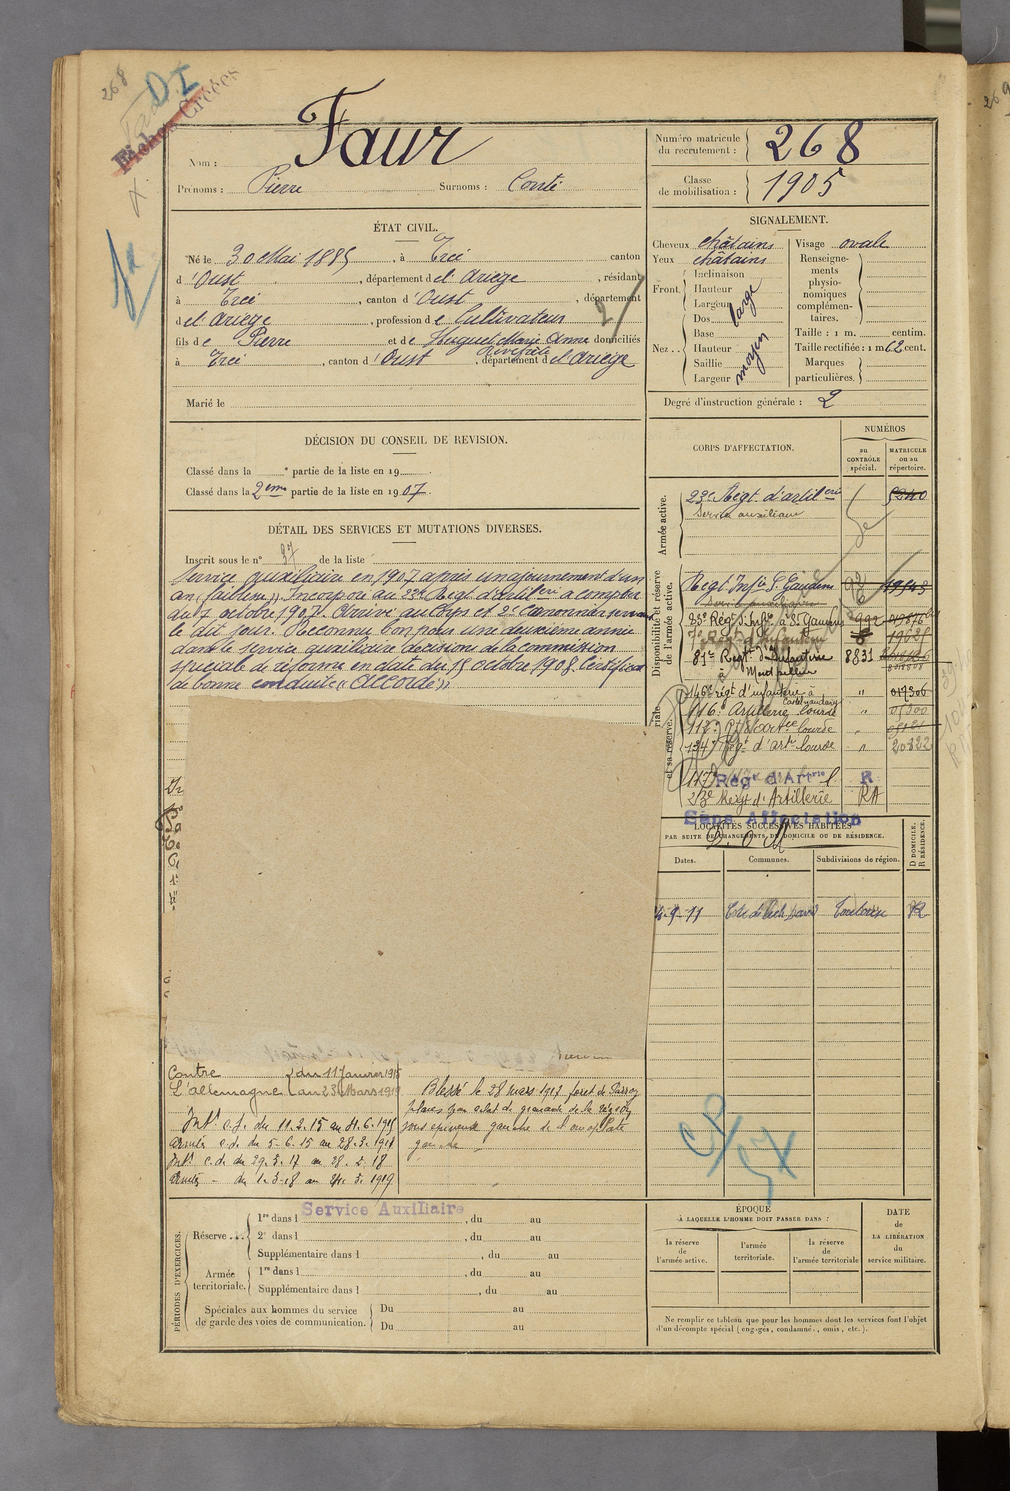 268
DI
Fiches Créées
Nom : Faur
Prénoms : Pierre Surnoms : Conté
Numéro matricule du recrutement : 268
Classe de mobilisation : 1905
ÉTAT CIVIL.
Né le 30 Mai 1885, à Ercé canton
d'Oust, département de l'Ariège, résidant
à Ercé, canton d'Oust, département
de l'Ariège, profession de Cultivateur
fils de Pierre et de Huguet Marie Anne domiciliés
à Ercé, canton d'Oust, département de l'Ariège
Marié le
SIGNALEMENT.
Cheveux châtains
Yeux châtains
Front Inclinaison
Hauteur
Largeur large
Nez Dos
Base
Hauteur moyen
Saillie
Largeur
Visage ovale
Renseignements physionomiques complémentaires.
Taille : 1 m. centim.
Taille rectifiée : 1 m 62 cent.
Marques particulières.
Degré d'instruction générale : 2
DÉCISION DU CONSEIL DE REVISION.
Classé dans la e partie de la liste en 19
Classé dans la 2ème partie de la liste en 1907.
DÉTAIL DES SERVICES ET MUTATIONS DIVERSES.
Inscrit sous le n° 37 de la liste
Service auxiliaire en 1907 après un ajournement d'un
an (faiblesse). Incorporé au 23e Régt d'artilerie à compter
du 7 octobre 1907. Arrivé au Corps et 2e canonnier servant
le dit jour. Reconnu bon pour une deuxième année
dans le service auxiliaire décision de la commission
spéciale de réforme en date du 15 octobre 1908. Certificat
de bonne conduite « Accordé »
CORPS D'AFFECTATION.
NUMÉROS
au CONTRÔLE spécial.
MATRICULE ou au répertoire.
Armée active.
23e Régt d'artilerie 5240
Service auxiliaire
Disponibilité et réserve de l'armée active.
Régt Infie St Gaudens
Service auxiliaire
83e Régt d'Infie à St Gaudens 992
81e Régt d'Infanterie 8831
à Montpellier
et sa réserve.
146e régt d'infanterie à " 017306
116e Artillerie lourde " 01300
118e
134e Régt d'artie lourde " 20322
117e Régt d'Artrie l. R
23e Régt d'Artillerie RA
Sans Affectation
LOCALITÉS SUCCESSIVES HABITÉES
PAR SUITE DE CHANGEMENTS DE DOMICILE OU DE RÉSIDENCE.
Dates. Communes. Subdivisions de région. D DOMICILE. R RÉSIDENCE.
Toulouse R
Contre du 11 Janvier 1915
L'allemagne au 23 Mars 1919
Intr c.d. du 11.2.15 au 4.6.1915
Armées c.d. du 5.6.15 au 28.3.1917
Intr c.d. du 29.3.17 au 28.2.18
Armées - du 1.3.18 au 24.3.1919
Blessé le 28 mars 1917 foret de Parroy
plaies par éclat de grenade de la région
sous épineuse gauche de l'omoplate
gauche
PÉRIODES D'EXERCICES.
Réserve
1re dans l Service Auxiliaire, du au
2e dans l, du au
Supplémentaire dans l, du au
Armée territoriale.
1re dans l, du au
Supplémentaire dans l, du au
Spéciales aux hommes du service de garde des voies de communication.
Du au
Du au
ÉPOQUE
À LAQUELLE L'HOMME DOIT PASSER DANS :
la réserve de l'armée active.
l'armée territoriale.
la réserve de l'armée territoriale
DATE de LA LIBÉRATION du service militaire.
Ne remplir ce tableau que pour les hommes dont les services font l'objet
d'un décompte spécial (engagés, condamné, omis, etc.).